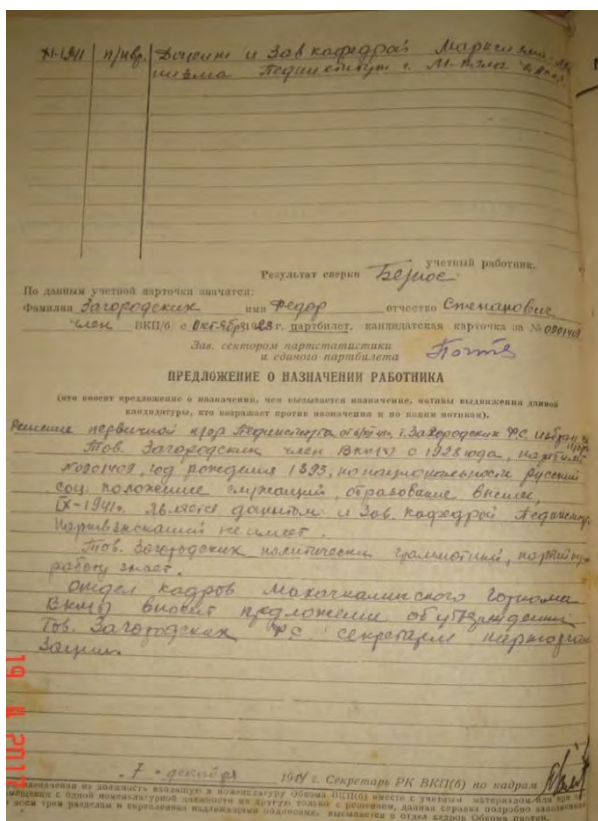 XI-1941 п/нвр. Доцент и Зав кафедрой Марксизма-Ле
низма Пединститут г. М-кала
учетный работник.
Результат сверки
По данным учетной карточки значится:
Фамилия Загородских имя Федор отчество Степанович
член ВКП/б с октября 1928 г. партбилет, кандидатская карточка за № 0901409
Зав. сектором партстатистики
и единого партбилета
ПРЕДЛОЖЕНИЕ О НАЗНАЧЕНИИ РАБОТНИКА
(кто вносит предложение о назначении, чем вызывается назначение, мотивы выдвижения данной
кандидатуры, кто возражает против назначения и по каким мотивам).
Решение первичной Пединститута т. Загородских Ф.С. избран
Тов. Загородских член ВКП(б) с 1928 года, партбилет
№0901409, год рождения 1893, по национальности русский
соц. положение служащий, образование высшее,
IX-1941г. является доцентом и Зав. кафедрой Пединст.
Партвзысканий не имеет.
Тов. Загородских политически грамотный, партийную
работу знает.
Отдел кадров Махачкалинского Горкома
ВКП(б) вносит предложение об утверждении
Тов. Загородских Ф.С. секретарем парторган
изации.
„7" декабря 1944 г. Секретарь РК ВКП(б) по кадрам
назначении на должность входящую в номенклатуру Обкома ВКП(б) вместе с учетным материалом или при
мещения с одной номенклатурной должности на другую только с решением, данная справка подробно заполненная
всем трем разделам и скрепленная надлежащими подписями, высылается в отдел кадров Обкома партии.